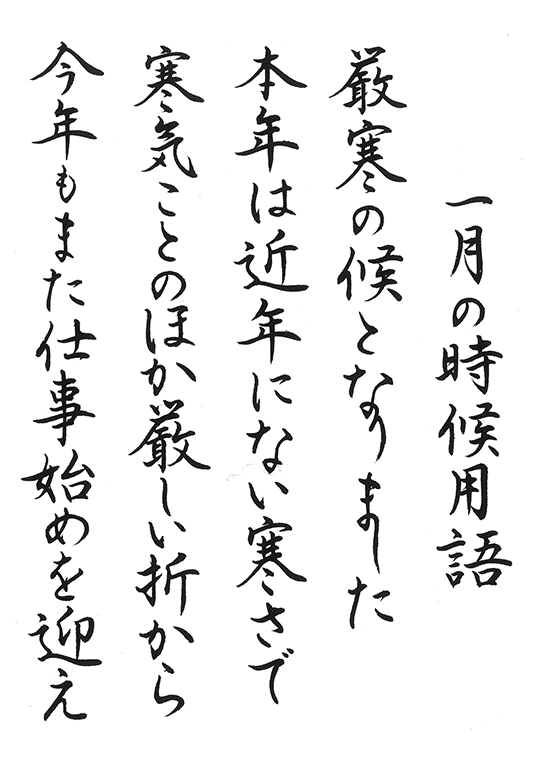 一月の時候用語
厳寒の候となりました
本年は近年にない寒さで
寒気ことのほか厳しい折から
今年もまた仕事始めを迎え